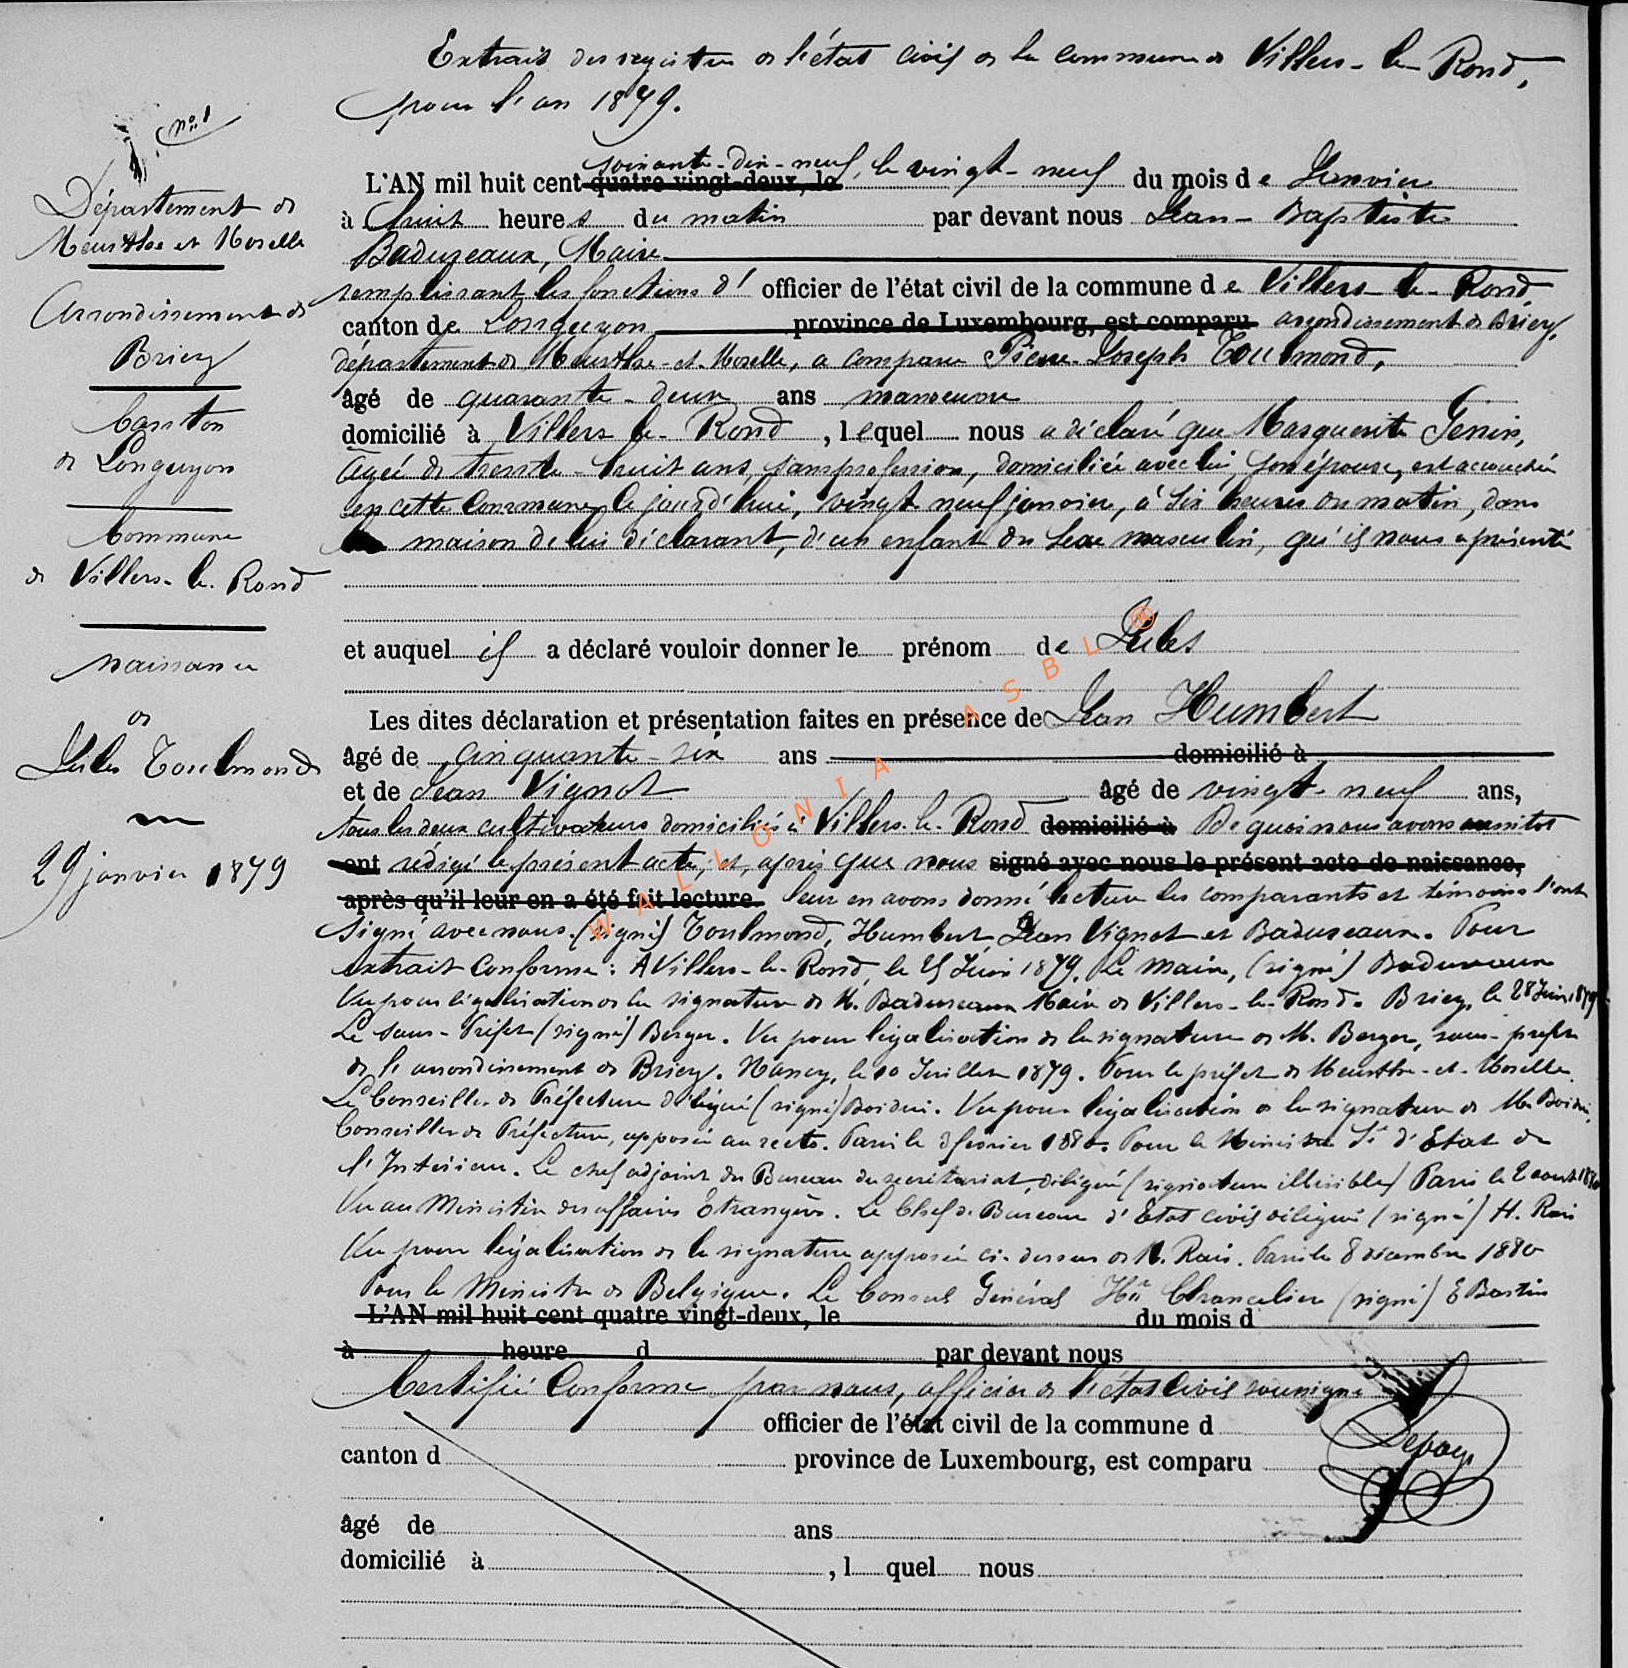 Extrait des registres de l'état civil de la commune de Villers-le-Rond,
pour l'an 1879.
N° 1
Département de
Meurthe et Moselle
Arrondissement de
Briey
Canton
de Longuyon
Commune
de Villers-le-Rond
Naissance
de
Jules Toulmond
29 janvier 1879
soixante-dix-neuf,
L'AN mil huit cent quatre vingt-deux, le le vingt-neuf du mois de Janvier
à huit heures du matin par devant nous Jean-Baptiste
Baduzeaux, Maire
remplissant les fonctions d' officier de l'état civil de la commune de Villers-le-Rond,
canton de Longuyon province de Luxembourg, est comparu arrondissement de Briey,
département de Meurthe-et-Moselle, a comparu Pierre-Joseph Toulmond,
âgé de quarante-deux ans manoeuvre
domicilié à Villers-le-Rond, lequel nous a déclaré que Marguerite Genin,
âgée de trente-huit ans, sans profession, domiciliée avec lui, son épouse, est accouchée
en cette commune le jourd'hui, vingt neuf janvier, à six heures du matin, dans
la maison de lui déclarant, d'un enfant du sexe masculin, qu'il nous a présenté
et auquel il a déclaré vouloir donner le prénom de Jules
Les dites déclaration et présentation faites en présence de Jean Humbert
âgé de cinquante-six ans domicilié à
et de Jean Vignot âgé de vingt-neuf ans,
tous les deux cultivateurs domiciliés à Villers-le-Rond domicilié à De quoi nous avons aussitôt
ont rédigé le présent acte, et, après que nous signé avec nous le présent acte de naissance,
après qu'il leur en a été fait lecture. leur en avons donné lecture les comparants et témoins l'ont
signé avec nous. (signé) Toulmond, Humbert, Jean Vignot et Baduzeaux. Pour
extrait conforme: A Villers-le-Rond, le 25 Juin 1879. Le Maire, (signé) Baduzeaux
Vu pour légalisation de la signature de M. Baduzeaux Maire de Villers-le-Rond. Briey, le 28 Juin 1879
Le Sous-Préfet (signé) Berger. Vu pour légalisation de la signature de M. Berger, sous-préfet
de l'arrondissement de Briey. Nancy, le 10 Juillet 1879. Pour le préfet de Meurthe-et-Moselle.
Le Conseiller de Préfecture délégué (signé) Vu pour légalisation de la signature de M.
Conseiller de Préfecture, apposée au recto. Paris le 3 février 1880. Pour le Ministre d'Etat de
l'Intérieur. Le chef adjoint du Bureau du secrétariat, délégué (signature illisible) Paris le 2 août 1880
Vu au Ministère des affaires Etrangères. Le Chef de Bureau d'Etat civil délégué (signé) H. Rais
Vu pour légalisation de la signature apposée ci-dessus de M. Rais. Paris le 8 décembre 1880
Pour le Ministre de Belgique. Le Consul Général Chancelier (signé) E Bastin
L'AN mil huit cent quatre vingt-deux, le du mois d
à heure d par devant nous
Certifié Conforme par nous, officier de l'état civil soussigné
officier de l'état civil de la commune d
canton d province de Luxembourg, est comparu
âgé de ans
domicilié à , l quel nous
WALLONIA ASBL ®